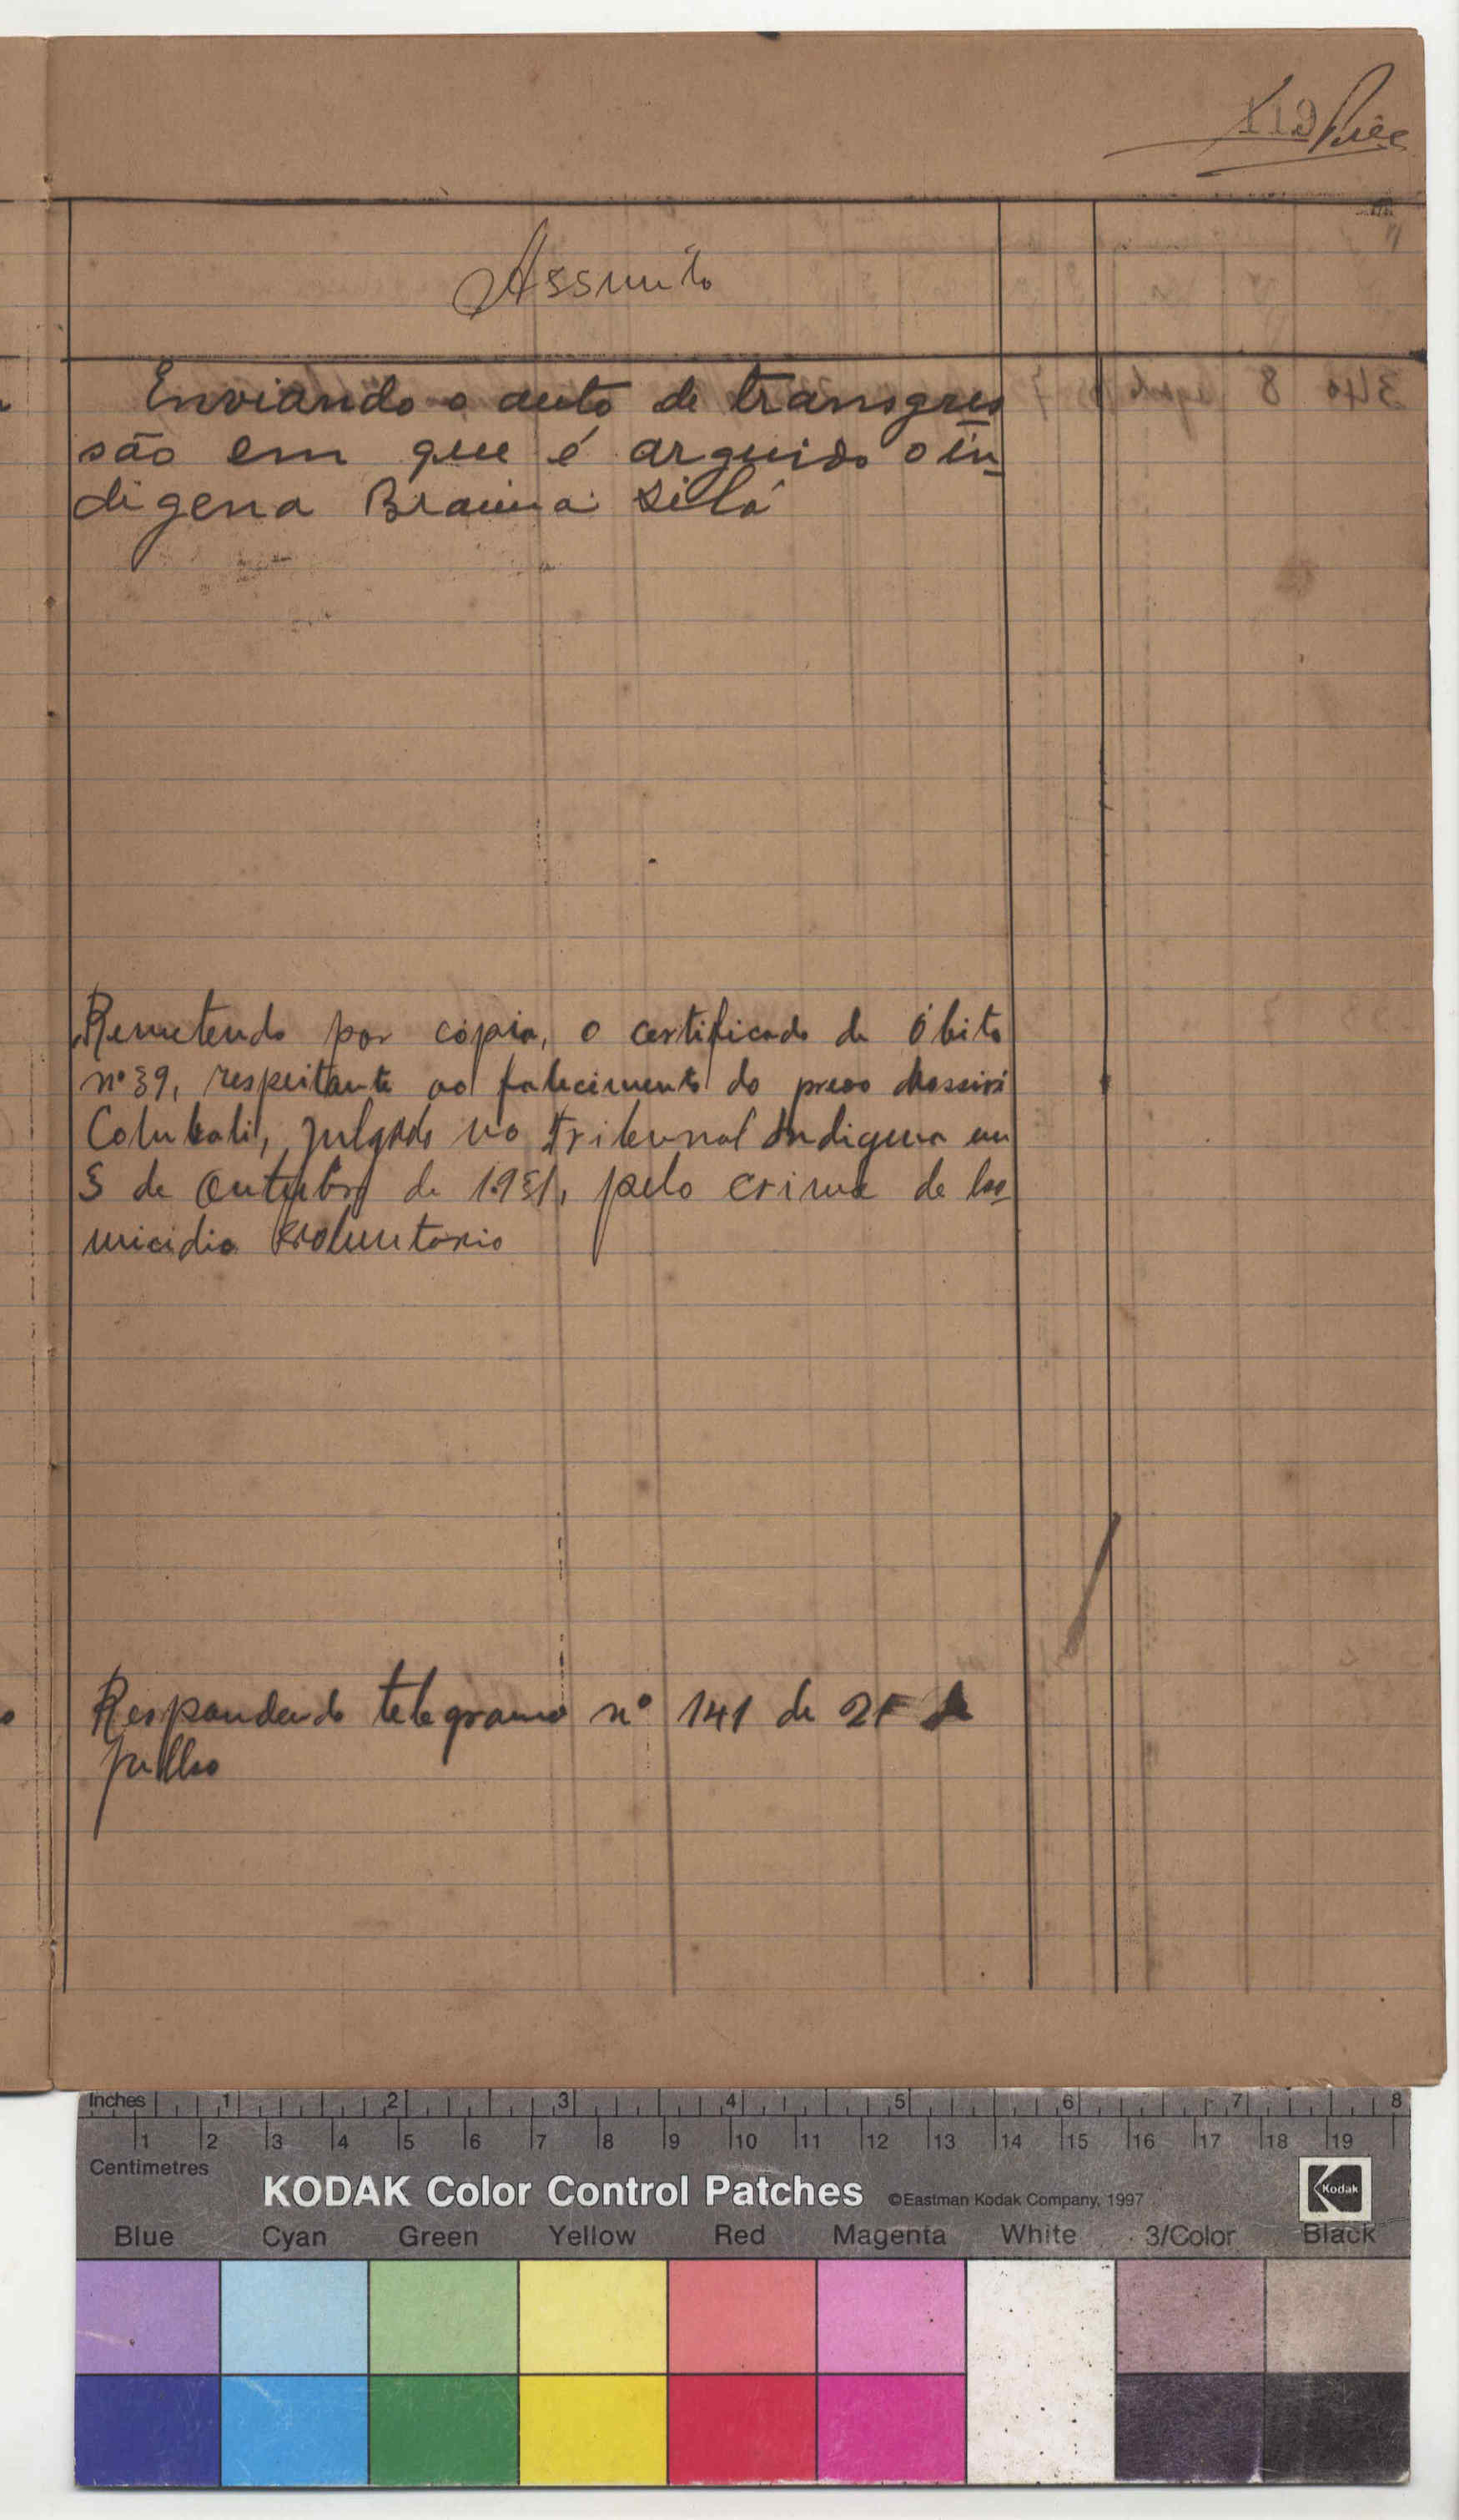 119
Assunto
Enviando o auto de transgres
são em que é arguido o in
digena Braima Silá
Remetendo por cópia, o certificado de Óbito
nº 39, respeitante ao falecimento do preso
Colubali, julgado no Tribunal Indigena em
5 de Outubro de 1.951, pelo crime de ho
micidio voluntario
Respondendo telegrama nº 141 de 27 de
julho
Inches 1 2 3 4 5 6 7 8
1 2 3 4 5 6 7 8 9 10 11 12 13 14 15 16 17 18 19
Centimetres
KODAK Color Control Patches ©Eastman Kodak Company, 1997 Kodak
Blue Cyan Green Yellow Red Magenta White 3/Color Black